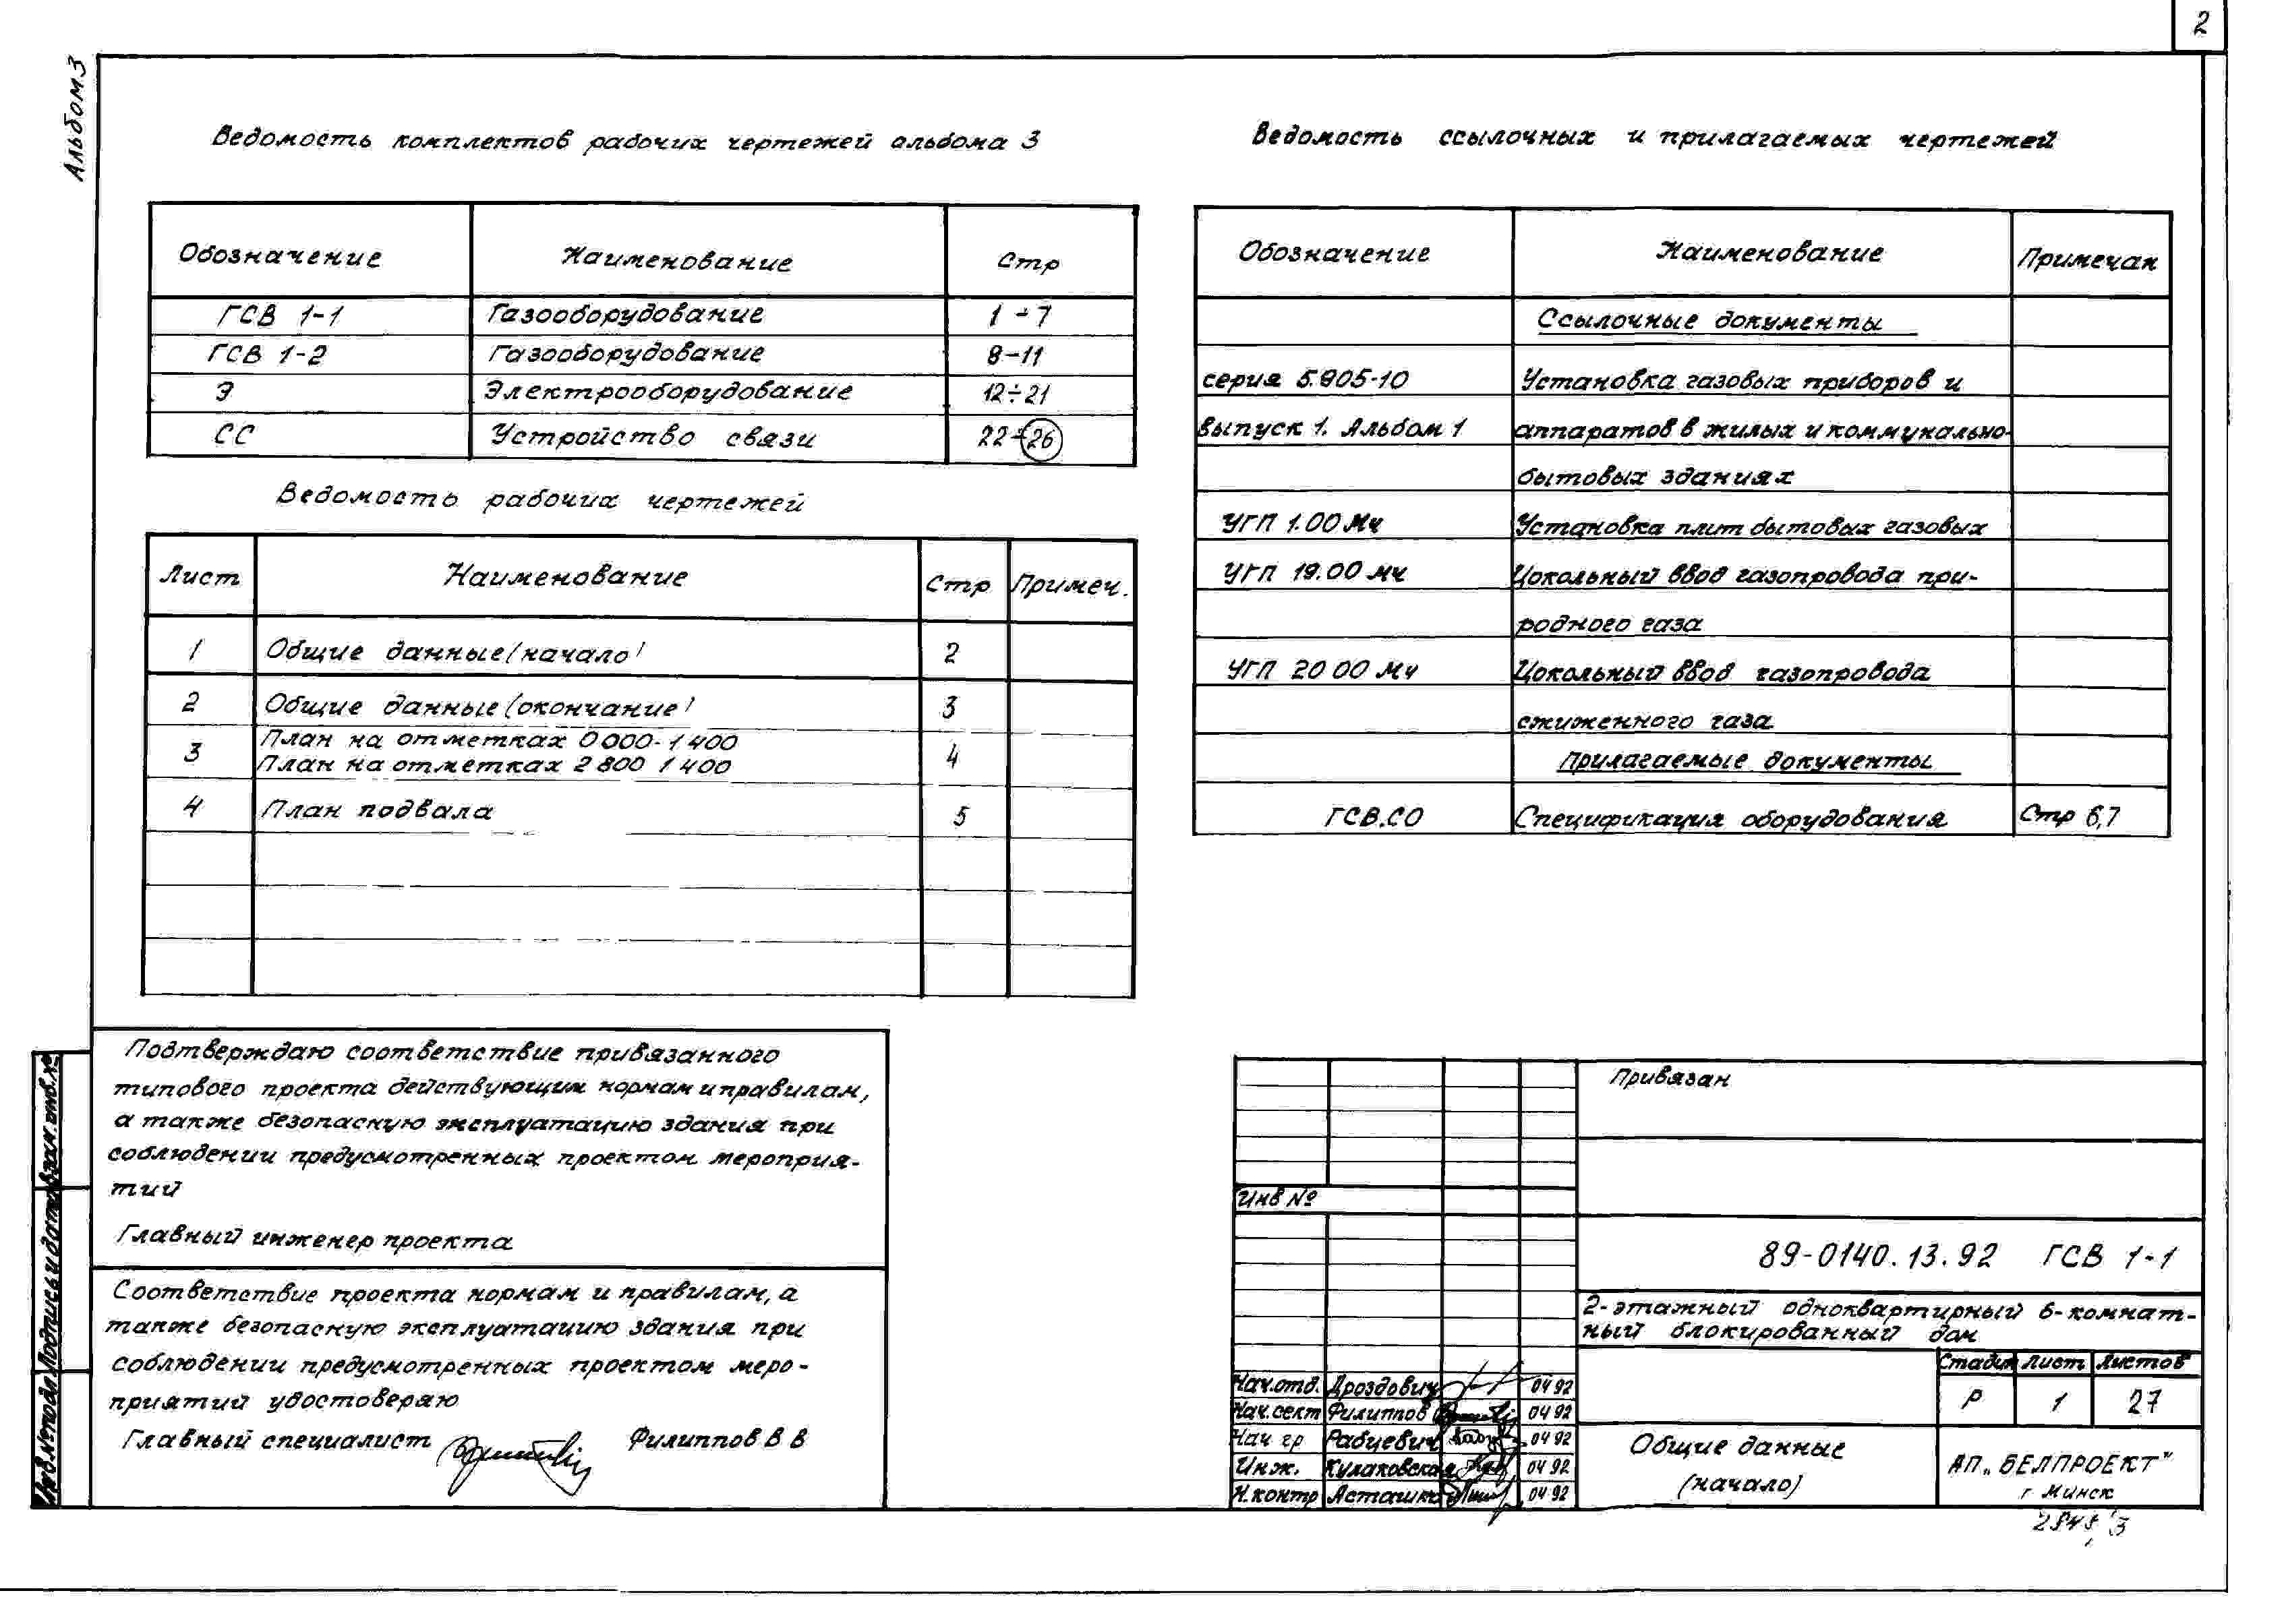 2
Альбом 3
Ведомость комплектов рабочих чертежей альбома 3
Обозначение Наименование Стр
ГСВ 1-1 Газооборудование 1÷7
ГСВ 1-2 Газооборудование 8-11
Э Электрооборудование 12÷21
СС Устройство связи 22÷26
Ведомость рабочих чертежей
Лист Наименование Стр Примеч.
1 Общие данные (начало) 2
2 Общие данные (окончание) 3
3 План на отметках 0 000-1 400 4
План на отметках 2 800 1 400
4 План подвала 5
Ведомость ссылочных и прилагаемых чертежей
Обозначение Наименование Примечан
Ссылочные документы
серия 5.905-10 Установка газовых приборов и
выпуск 1. Альбом 1 аппаратов в жилых и коммунально-
бытовых зданиях
УГП 1.00 МЧ Установка плит бытовых газовых
УГП 19.00 МЧ Цокольный ввод газопровода при-
родного газа
УГП 20 00 МЧ Цокольный ввод газопровода
сжиженного газа
Прилагаемые документы
ГСВ.СО Спецификация оборудования Стр 6,7
Подтверждаю соответствие привязанного
типового проекта действующим нормам и правилам,
а также безопасную эксплуатацию здания при
соблюдении предусмотренных проектом мероприя-
тий
Главный инженер проекта
Соответствие проекта нормам и правилам, а
также безопасную эксплуатацию здания при
соблюдении предусмотренных проектом меро-
приятий удостоверяю
Главный специалист Филиппов В В
Инв.№ подл. Подпись и дата Взам. инв.№
Привязан
Инв №
89-0140.13.92 ГСВ 1-1
2-этажный одноквартирный 6-комнат-
ный блокированный дом
Стадия Лист Листов
Р 1 27
Нач.отд. Дроздович 04 92
Нач.сект Филиппов 04 92
Нач гр Рабцевич 04 92
Инж. Кулаковская 04 92
Н.контр Асташко 04 92
Общие данные
(начало)
АП „БЕЛПРОЕКТ"
г Минск